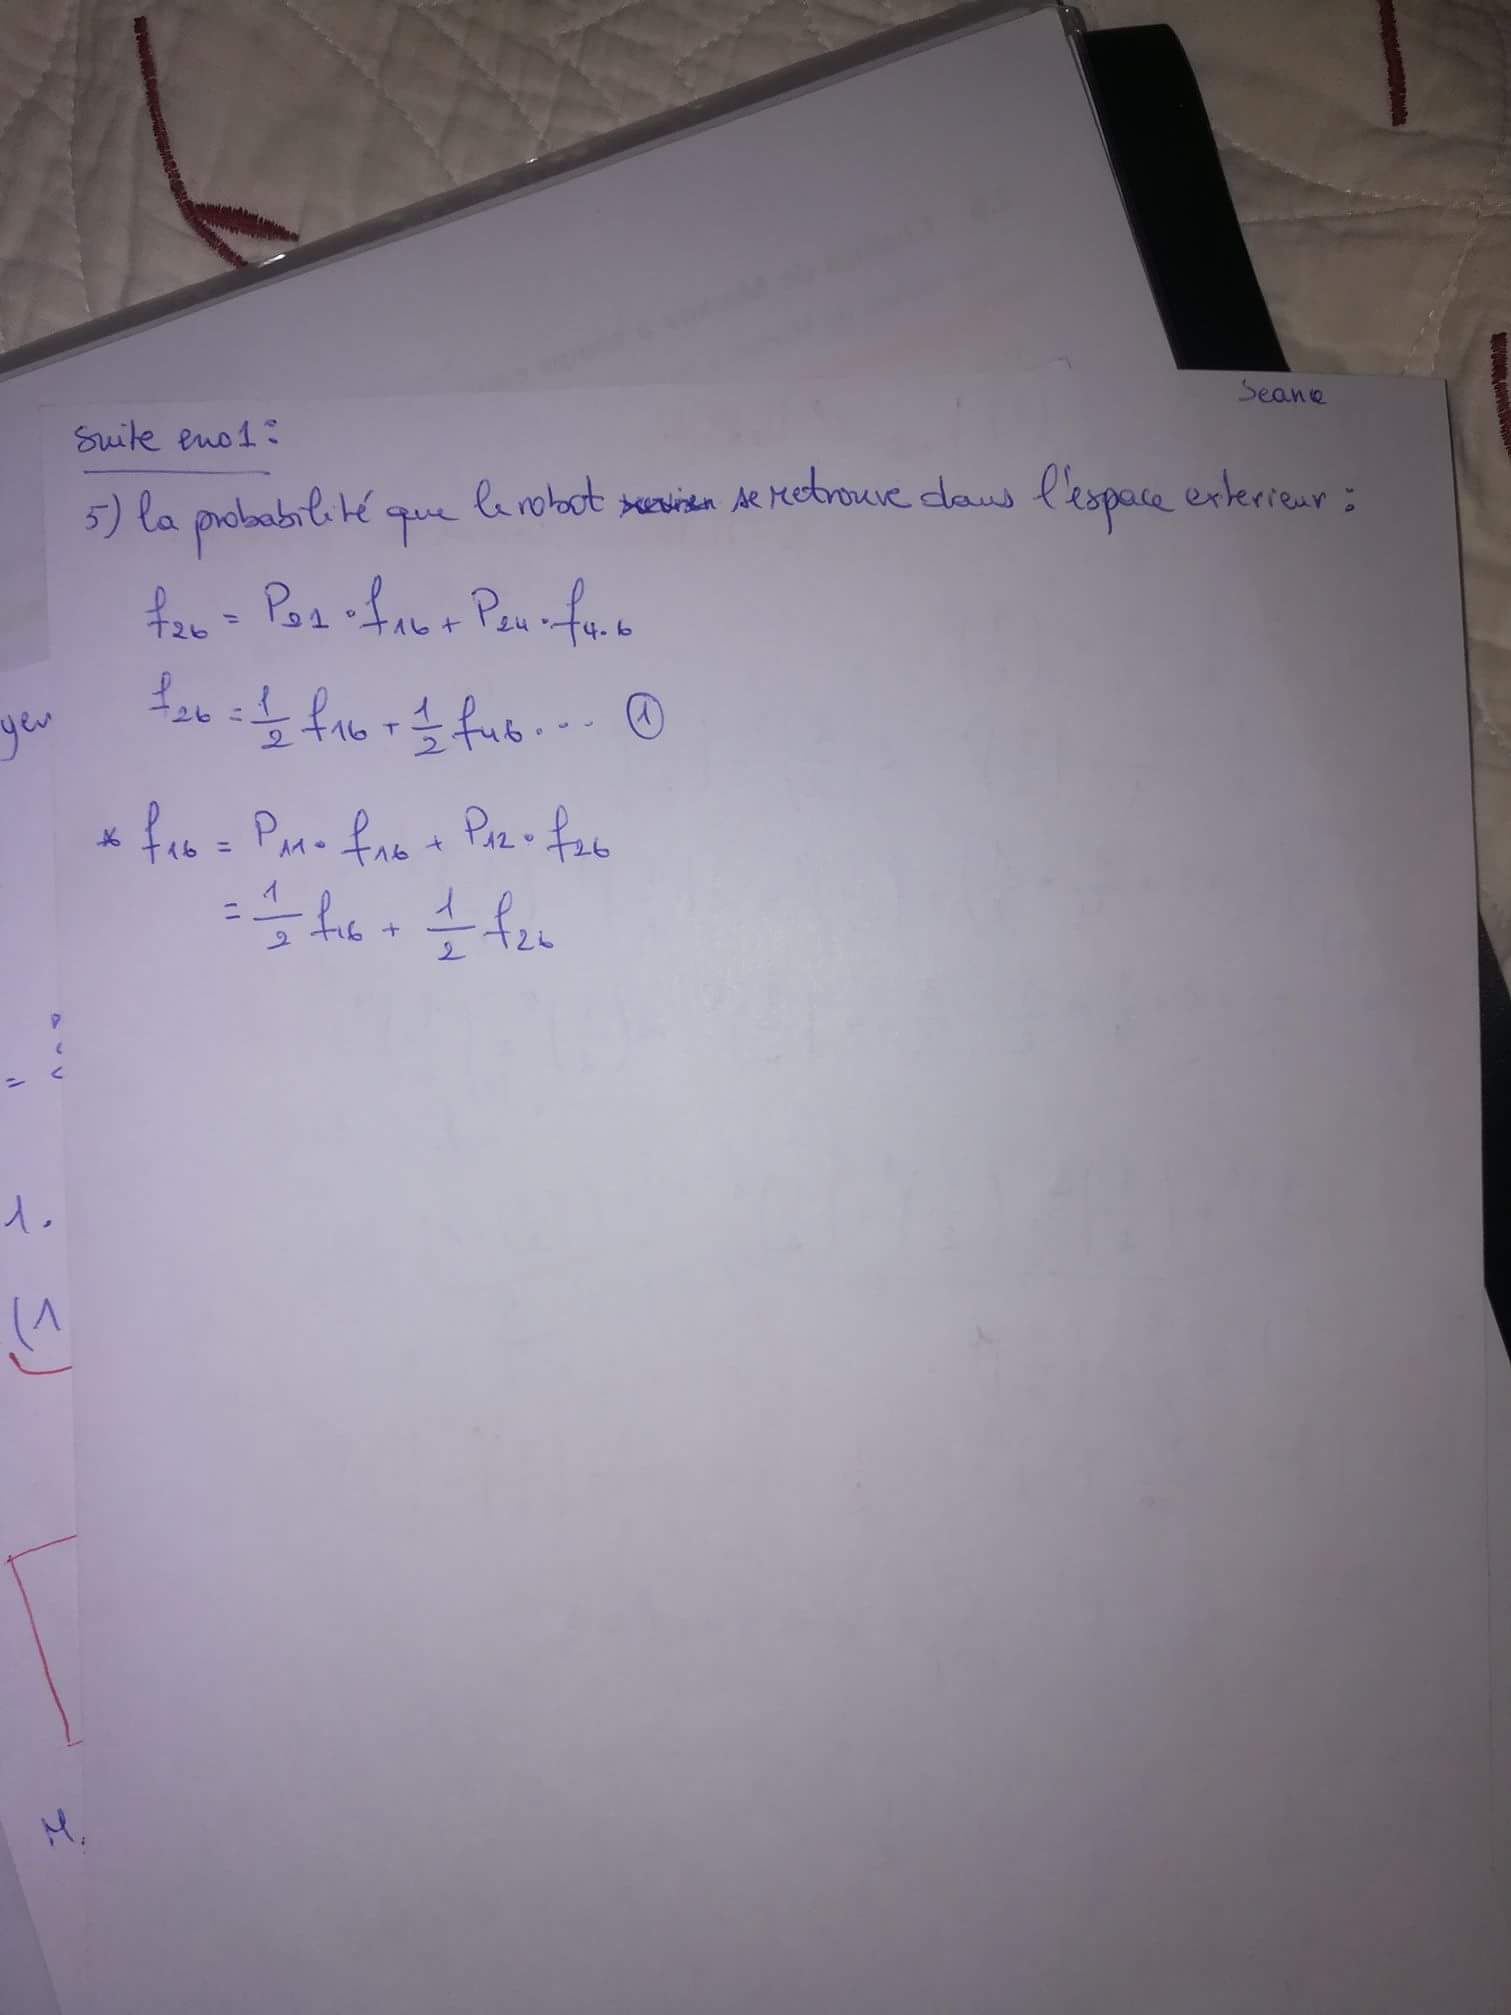 Seance
Suite exo1:
5) la probabilité que le robot se retrouve dans l'espace exterieur:
f26 = P21 · f16 + P24 · f4.6
f26 = 1/2 f16 + 1/2 f46 ... ①
* f16 = P11 · f16 + P12 · f26
= 1/2 f16 + 1/2 f26
yer
=
1.
(1
M.